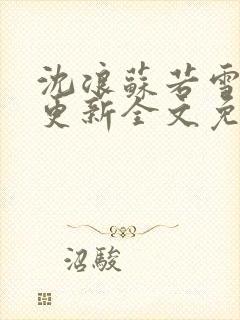 沈浪蘇若雪
更新全文免
沼駿